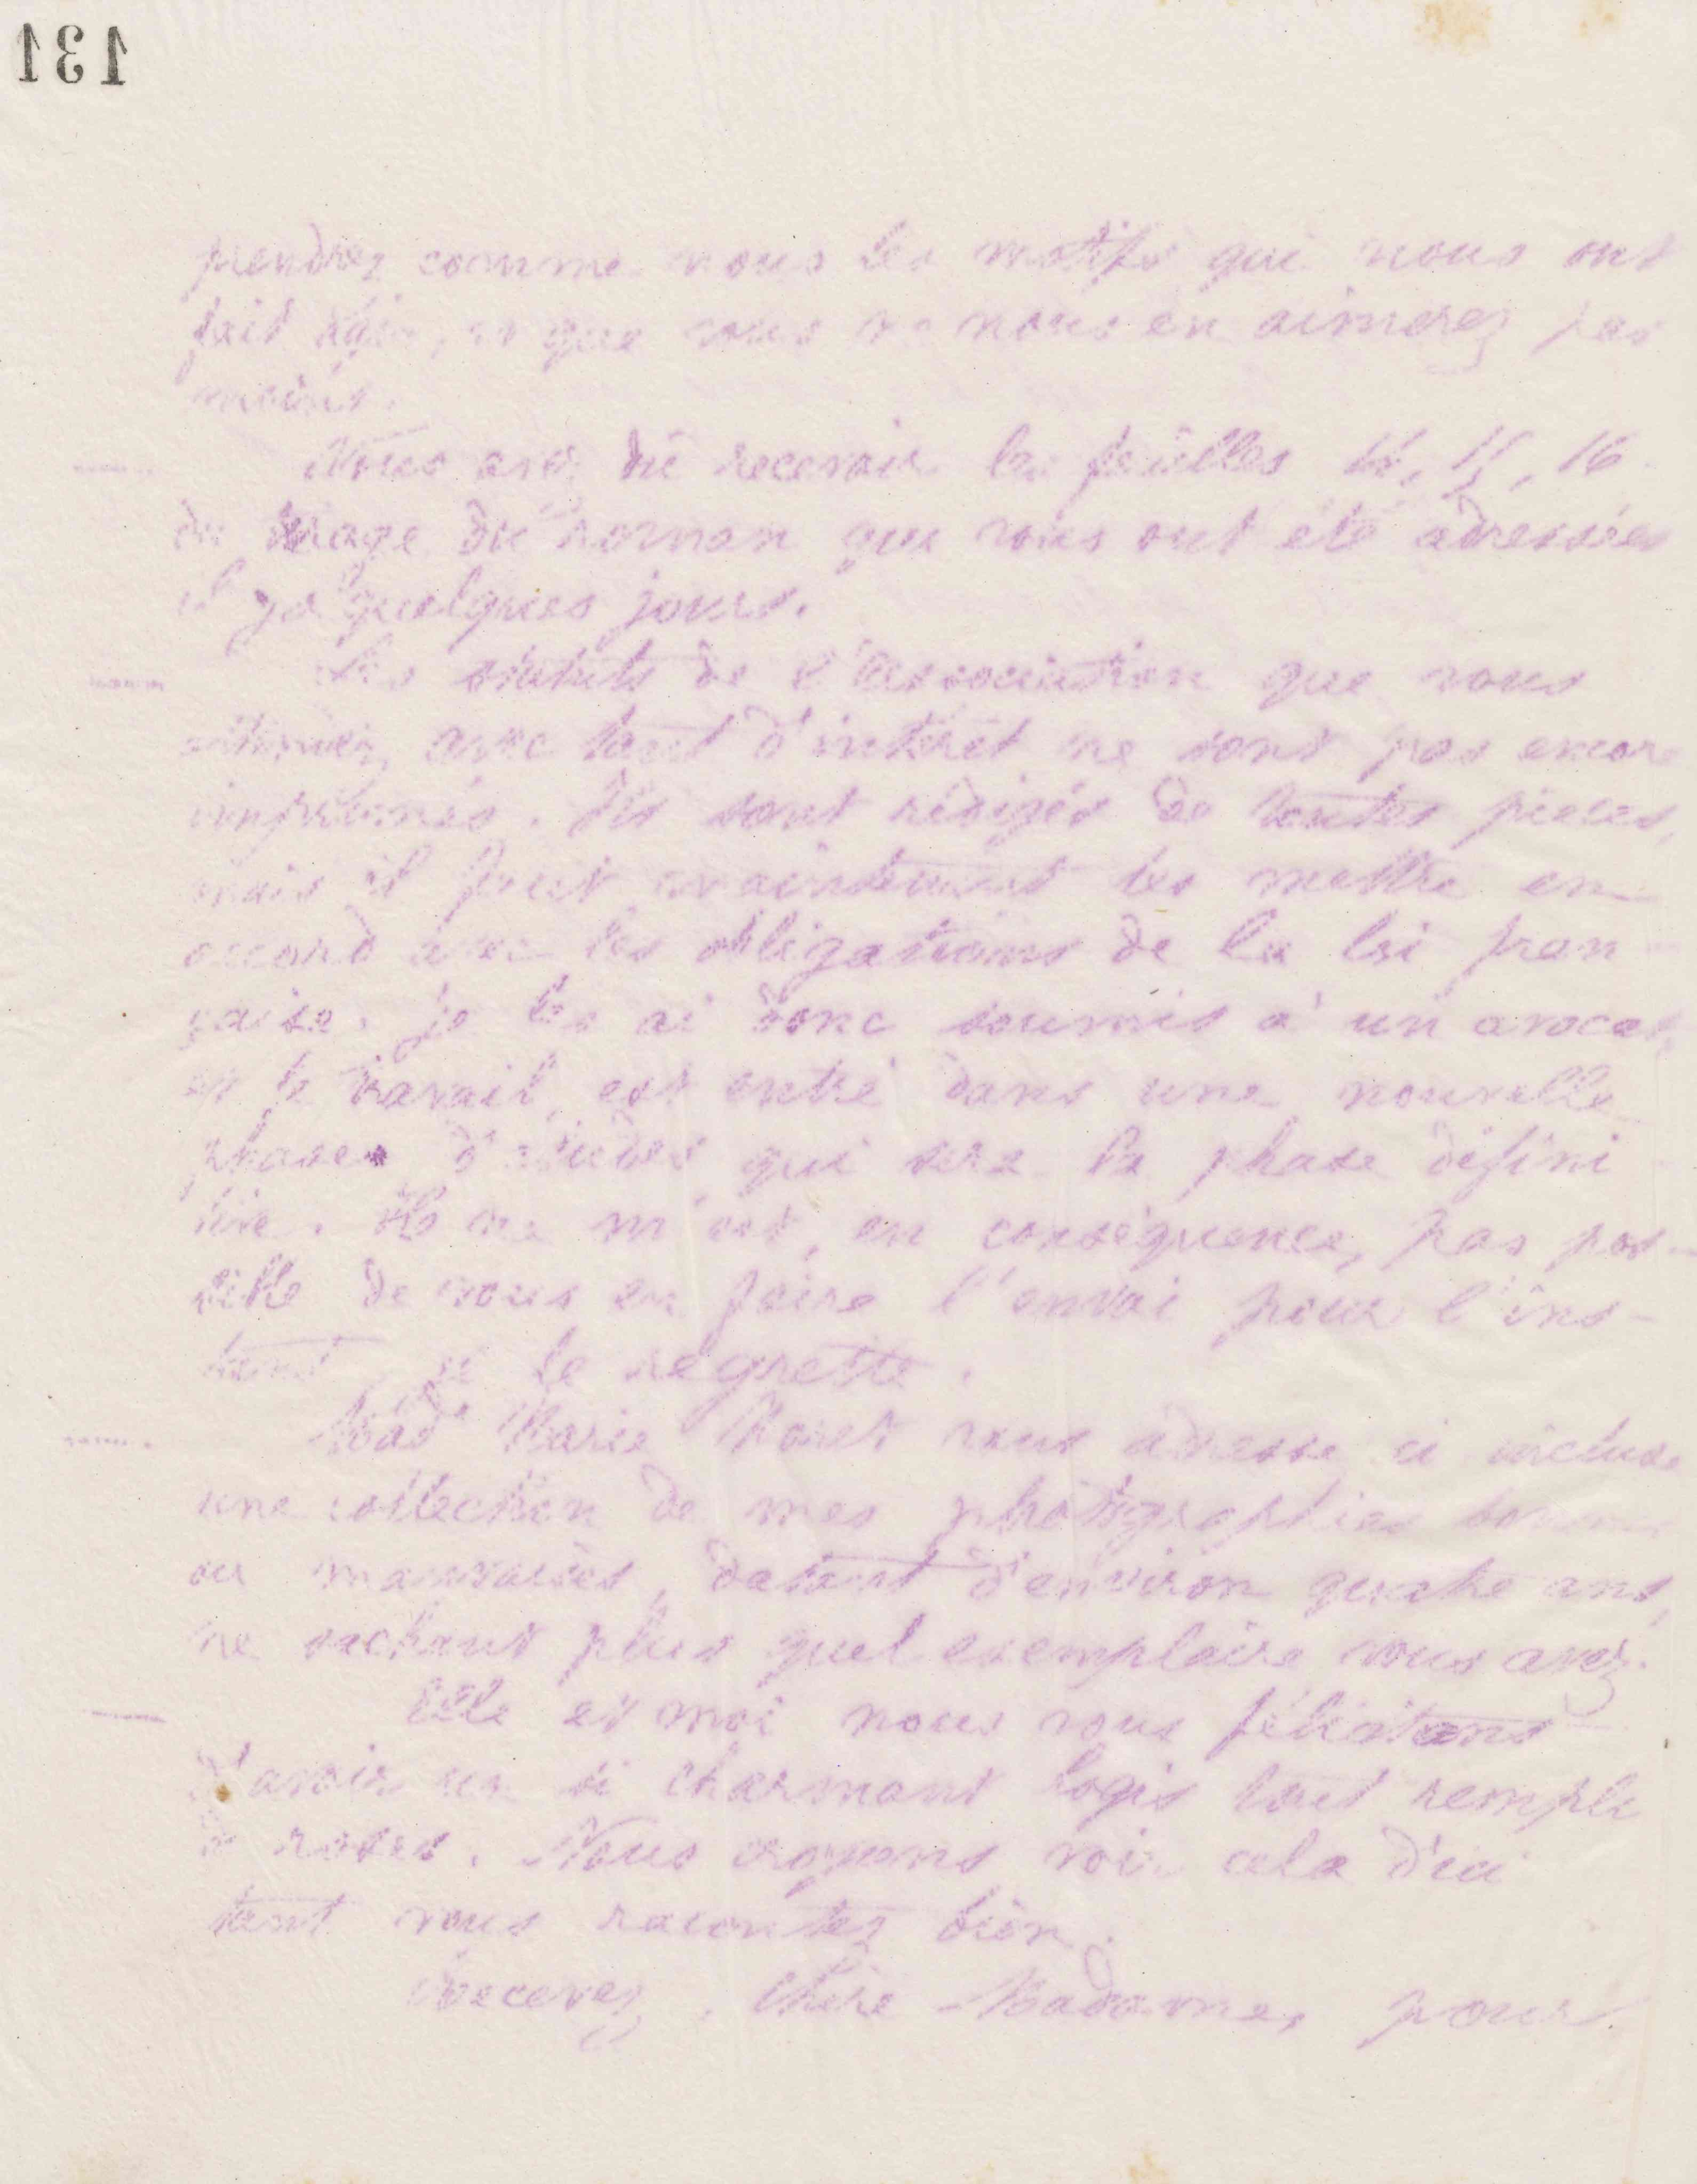 131
prendrez comme nous les motifs qui nous ont
fait agir, et que vous ne nous en aimerez pas
moins.
Vous avez dû recevoir les feuilles 14, 15, 16
du tirage du roman qui vous ont été adressées
il y a quelques jours.
Les statuts de l'association que vous
attendez avec tant d'intérêt ne sont pas encore
imprimés. Ils sont rédigés de toutes pièces,
mais il faut maintenant les mettre en
accord avec les obligations de la loi fran
çaise. Je les ai donc soumis à un avocat,
et le travail est entré dans une nouvelle
phase d'études qui sera la phase défini
tive. Il ne m'est, en conséquence, pas pos-
sible de vous en faire l'envoi pour l'ins-
tant, je le regrette.
Mad^e Marie Moret vous adresse ci incluse
une collection de mes photographies bonnes
ou mauvaises, datant d'environ quatre ans,
ne sachant plus quel exemplaire vous avez.
Elle et moi nous vous félicitons
d'avoir un si charmant logis tout rempli
de roses. Nous croyons voir cela d'ici
tant vous racontez bien.
Recevez, chère Madame, pour